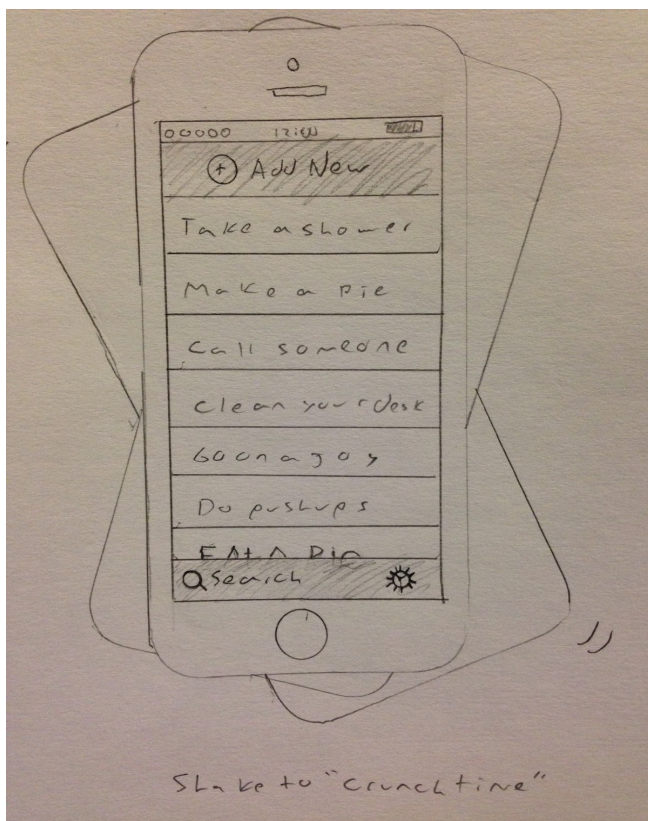 12:00
+ Add New
Take a shower
Make a pie
Call someone
Clean your desk
Go on a joy
Do pushups
EAt A Pie
Search
Shake to "Crunch time"